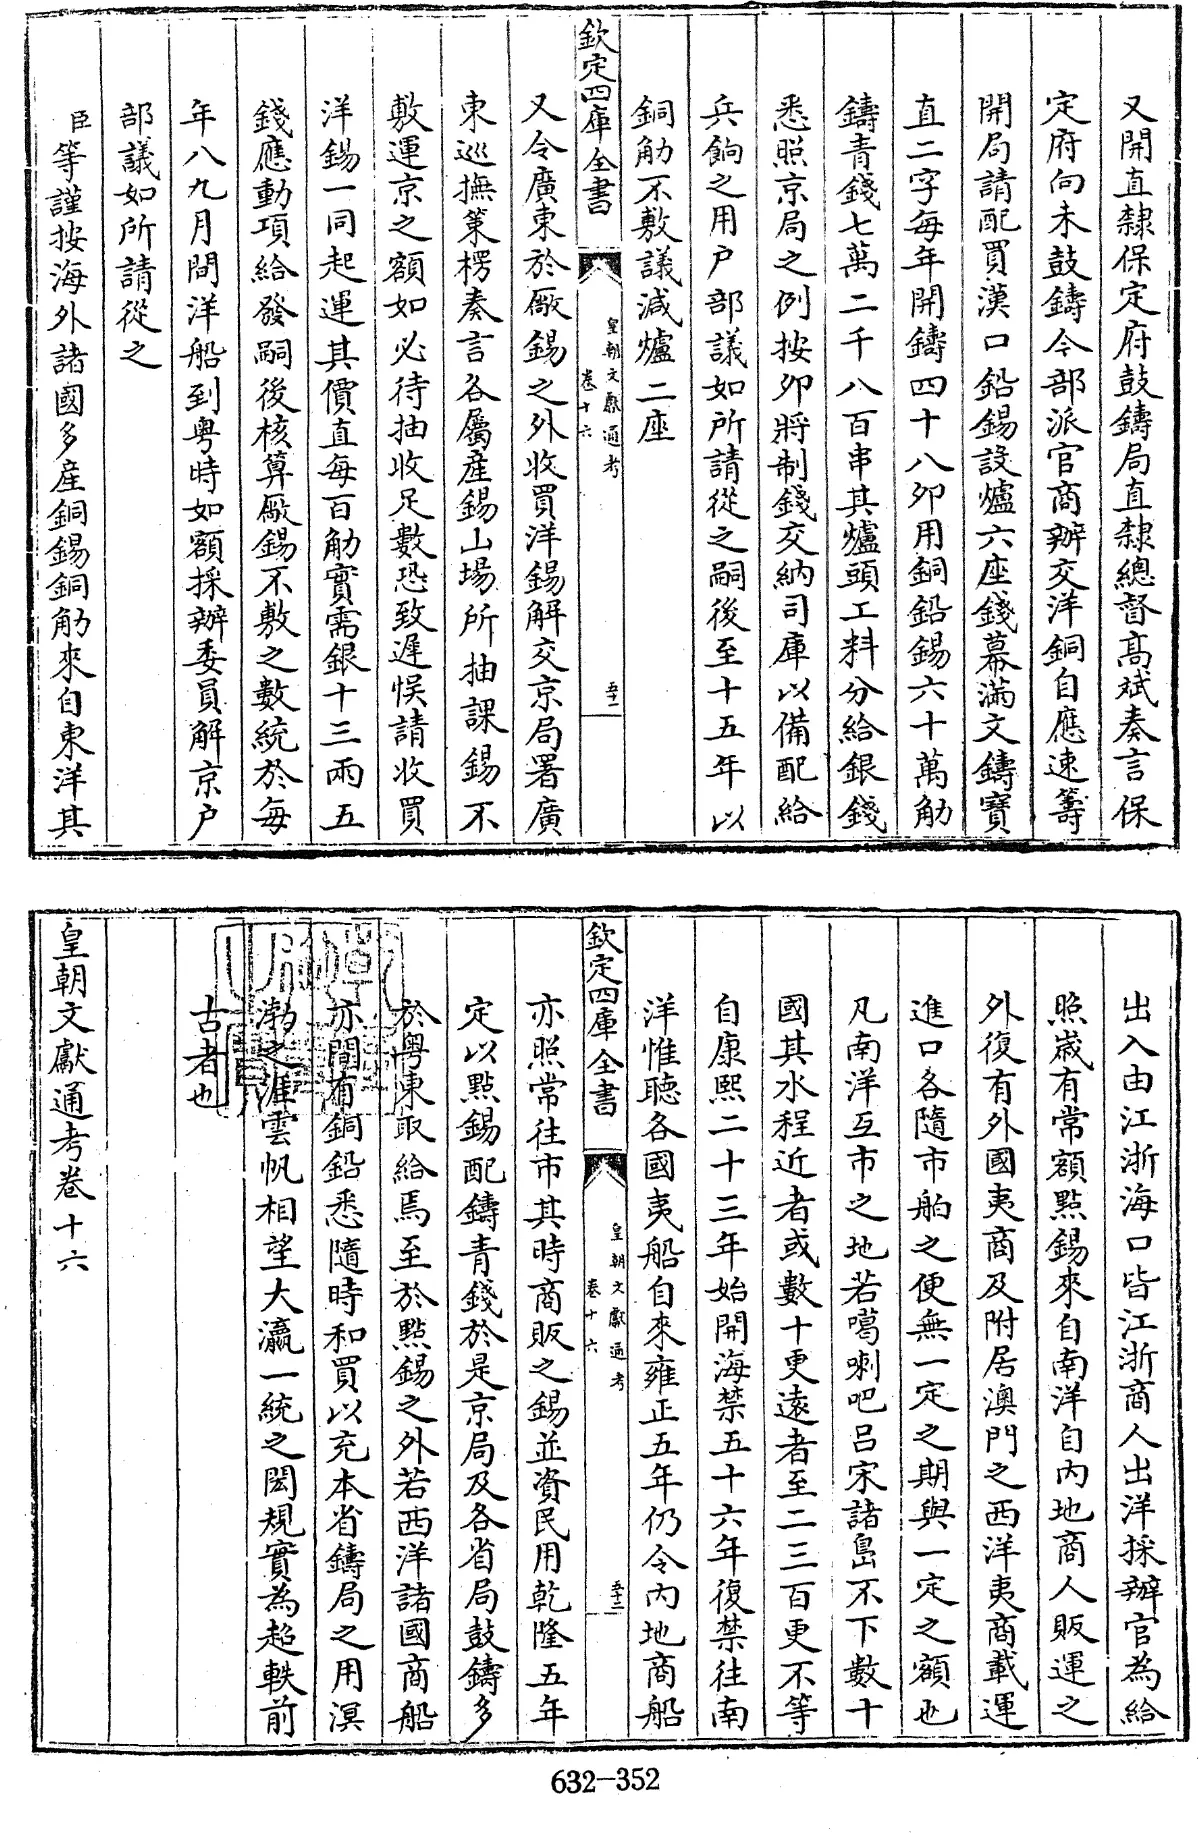 又開直隸保定府鼓鑄局直隸總督高斌奏言保
定府向未鼓鑄今部派官商辦交洋銅自應速籌
開局請配買漢口鉛錫設爐六座錢幕滿文鑄寶
直二字每年開鑄四十八夘用銅鉛錫六十萬觔
鑄青錢七萬二千八百串其爐頭工料分給銀錢
悉照京局之例按夘將制錢交納司庫以備配給
兵餉之用户部議如所請從之嗣後至十五年以
銅觔不敷議減爐二座
欽定四庫全書
皇朝文獻通考
卷十六
五十一
又令廣東於厰錫之外收買洋錫解交京局署廣
東巡撫策楞奏言各屬産錫山場所抽課錫不
敷運京之額如必待抽收足數恐致遲悞請收買
洋錫一同起運其價直每百觔實需銀十三兩五
錢應動項給發嗣後核算厰錫不敷之數統於每
年八九月間洋船到粤時如額採辦委員解京户
部議如所請從之
臣等謹按海外諸國多産銅錫銅觔來自東洋其
出入由江浙海口皆江浙商人出洋採辦官為給
照歲有常額點錫來自南洋自内地商人販運之
外復有外國夷商及附居澳門之西洋夷商載運
進口各隨市舶之便無一定之期與一定之額也
凡南洋互市之地若噶喇吧吕宋諸島不下數十
國其水程近者或數十更遠者至二三百更不等
自康熙二十三年始開海禁五十六年復禁往南
洋惟聽各國夷船自來雍正五年仍令内地商船
欽定四庫全書
皇朝文獻通考
卷十六
五十二
亦照常往市其時商販之錫並資民用乾隆五年
定以點錫配鑄青錢於是京局及各省局鼓鑄多
於粤東取給焉至於點錫之外若西洋諸國商船
亦間有銅鉛悉隨時和買以充本省鑄局之用溟
渤之涯雲帆相望大瀛一統之閎規實為超軼前
古者也
皇朝文獻通考卷十六
632-352